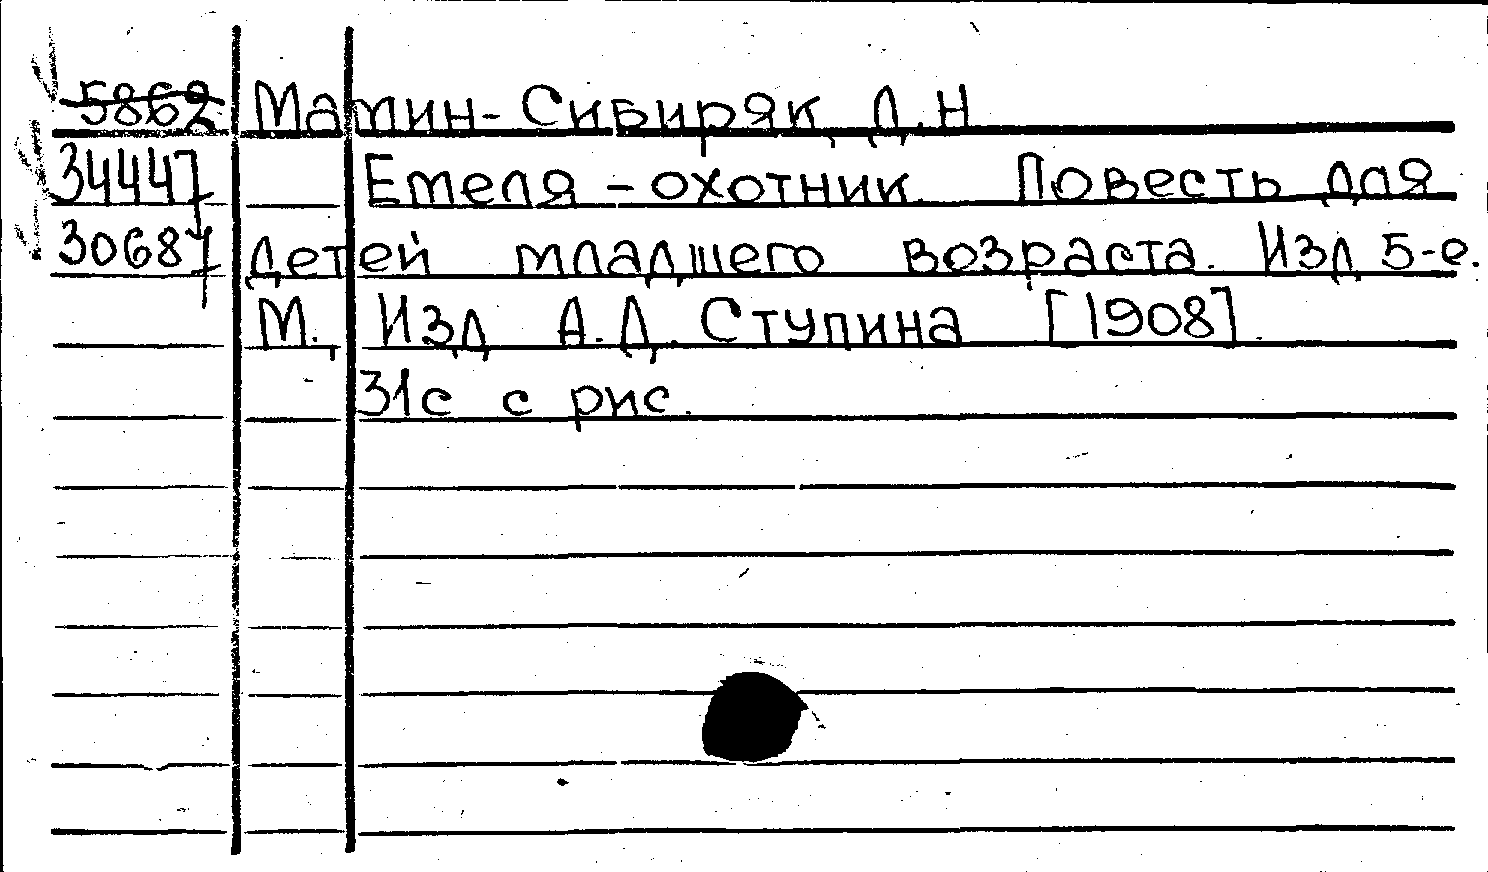 5862 Мамин-Сибиряк Д.Н
34447 Емеля - охотник. Повесть для
30687 детей младшего возраста. Изд 5-е.
М. Изд А.Д. Ступина [1908].
31с с рис.